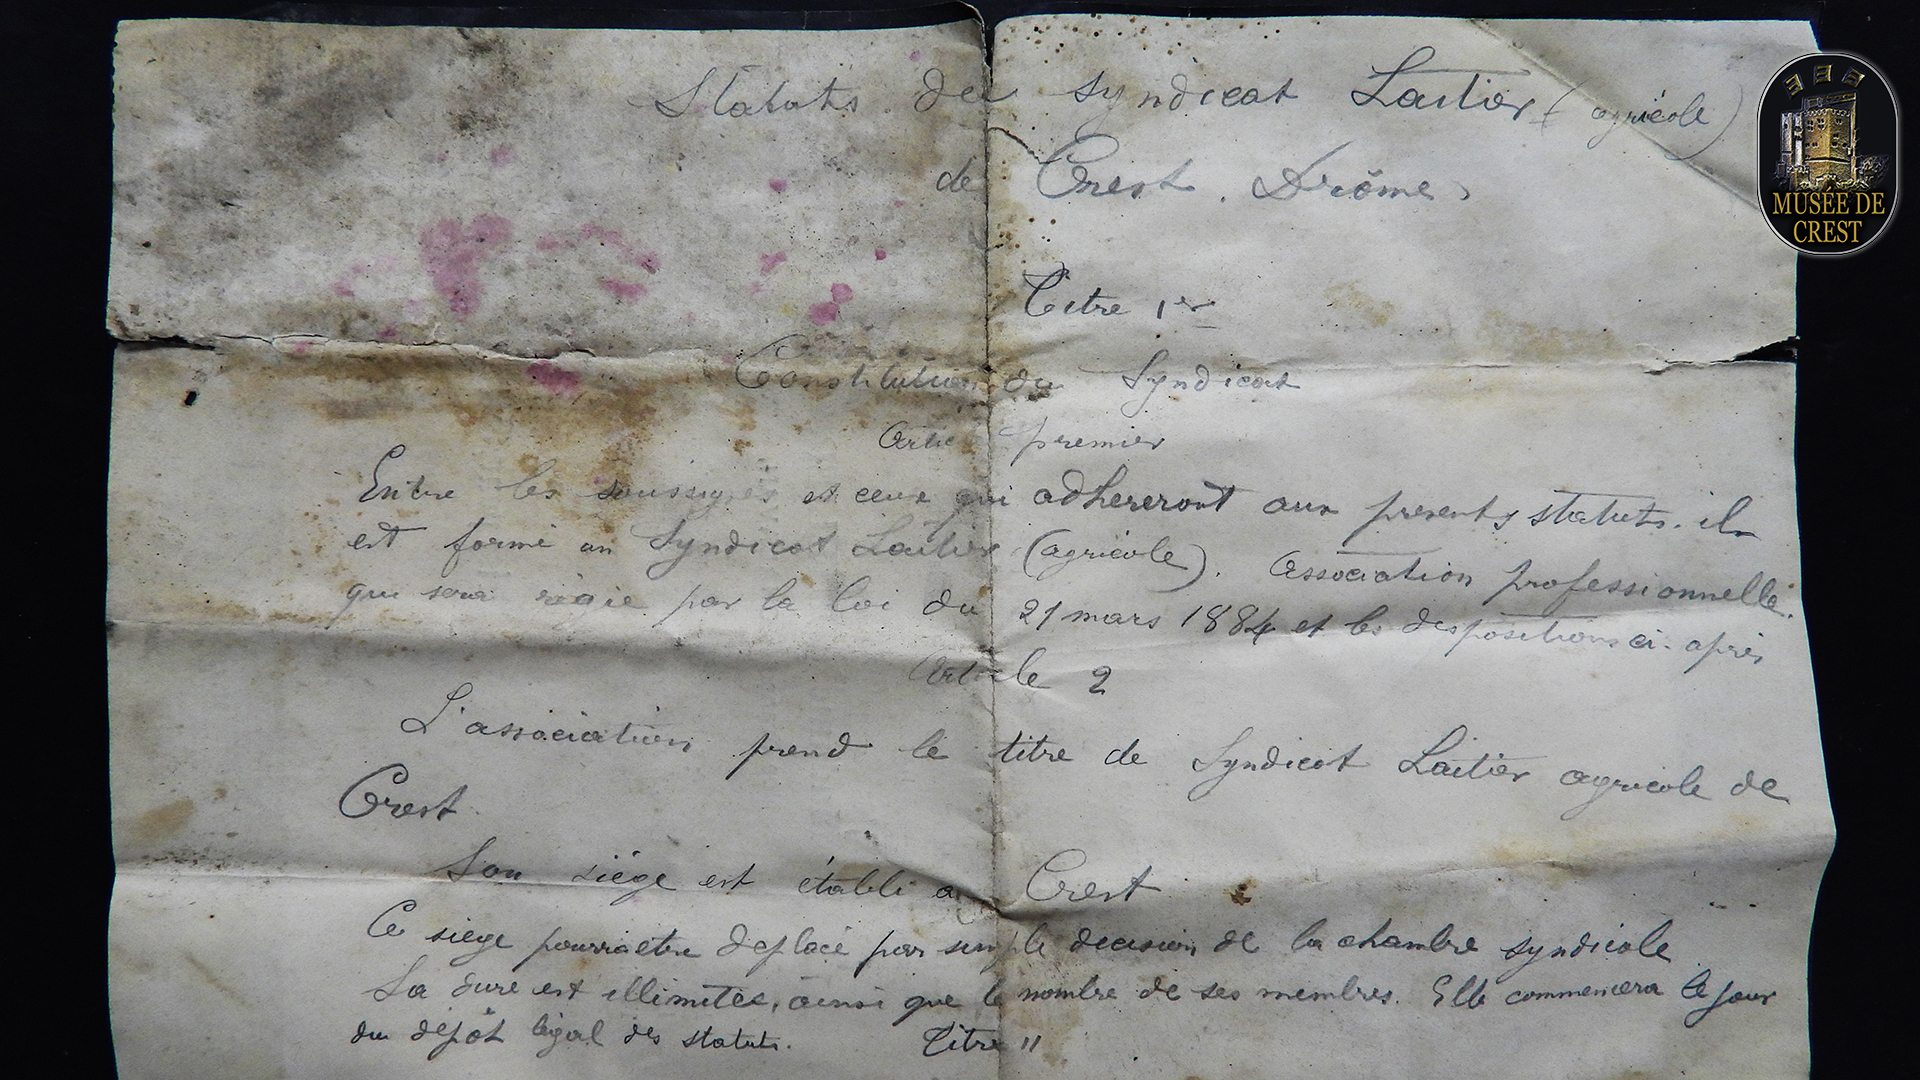 Statuts du Syndicat Laitier (agricole)
de Crest. Drôme
Titre 1er
Constitution du Syndicat
Article premier
Entre les soussignés et ceux qui adhereront aux presents statuts. il
est formé un Syndicat Laitier (agricole). Association professionnelle
qui sera régie par la loi du 21 mars 1884 et les dispositions ci-après
Article 2
L'association prend le titre de Syndicat Laitier agricole de
Crest.
Son siège est établi a Crest
Ce siege pourra etre deplacé par simple decision de la chambre syndicale
La dure est illimitée, ainsi que le nombre de ses membres. Elle commencera le jour
du dépôt légal des statuts. Titre II
MUSÉE DE
CREST